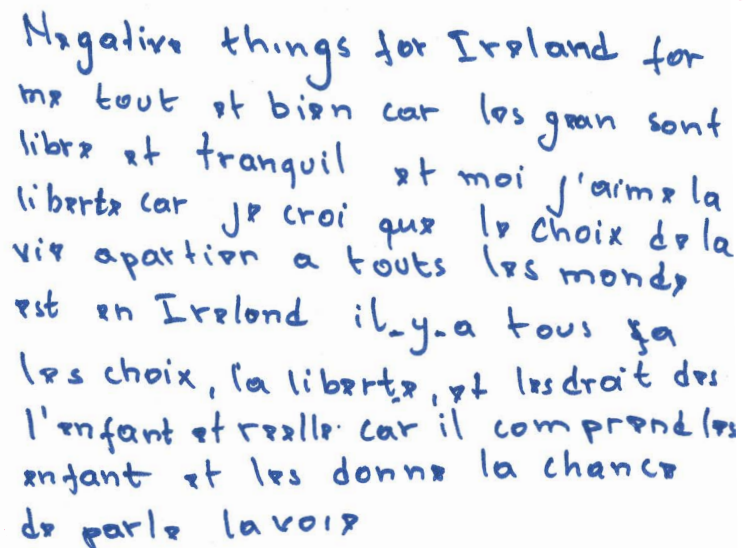 Negative things for Ireland for
me tout et bien car les gean sont
libre et tranquil et moi j'aime la
liberte car je croi que le choix de la
vie apartien a touts les monde
est en Irelond il-y-a tous ça
les choix, la liberte, et les droit des
l'enfant et reelle car il comprend les
enfant et les donne la chance
de parle la voie